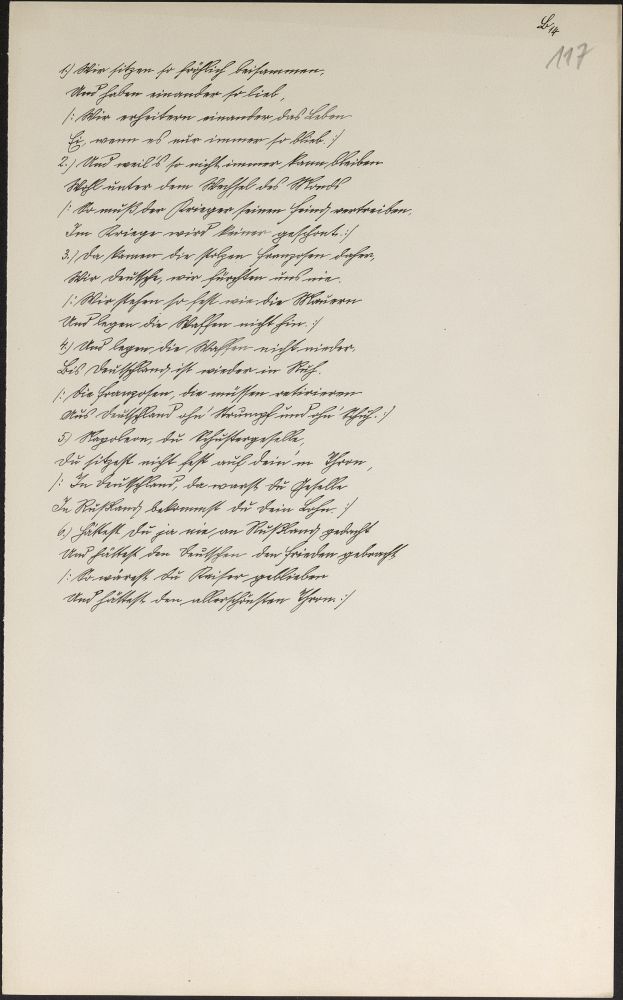 B 14
117
1.) Wir sitzen so fröhlich beisammen,
Und haben einander so lieb,
/: Wir erheitern einander das Leben
Ei, wenn es nur immer so blieb. :/
2.) Und weil's so nicht immer kann bleiben
Wohl unter dem Wechsel des Monds
/: So muß der Krieger seinen Feind vertreiben,
Im Kriege wird keiner geschont. :/
3.) Da kamen die stolzen Franzosen daher,
Wir Deutsche, wir fürchten uns nie.
/: Wir stehen so fest wie die Mauern
Und legen die Waffen nicht hin. :/
4.) Und legen die Waffen nicht nieder,
Bis Deutschland ist wieder in Ruh.
/: Die Franzosen, die müssen retirieren
Aus Deutschland ohn' Strumpf und ohn' Schuh. :/
5.) Napoleon, du Schustergeselle,
Du sitzest nicht fest auf dein'm Thron,
/: In Deutschland, da warst du Geselle
In Rußland bekommst du dein Lohn. :/
6.) Hättest du ja nie an Rußland gedacht
Und hättest den Deutschen den Frieden gebracht
/: So wärest du Kaiser geblieben
Und hättest den allerschönsten Thron. :/